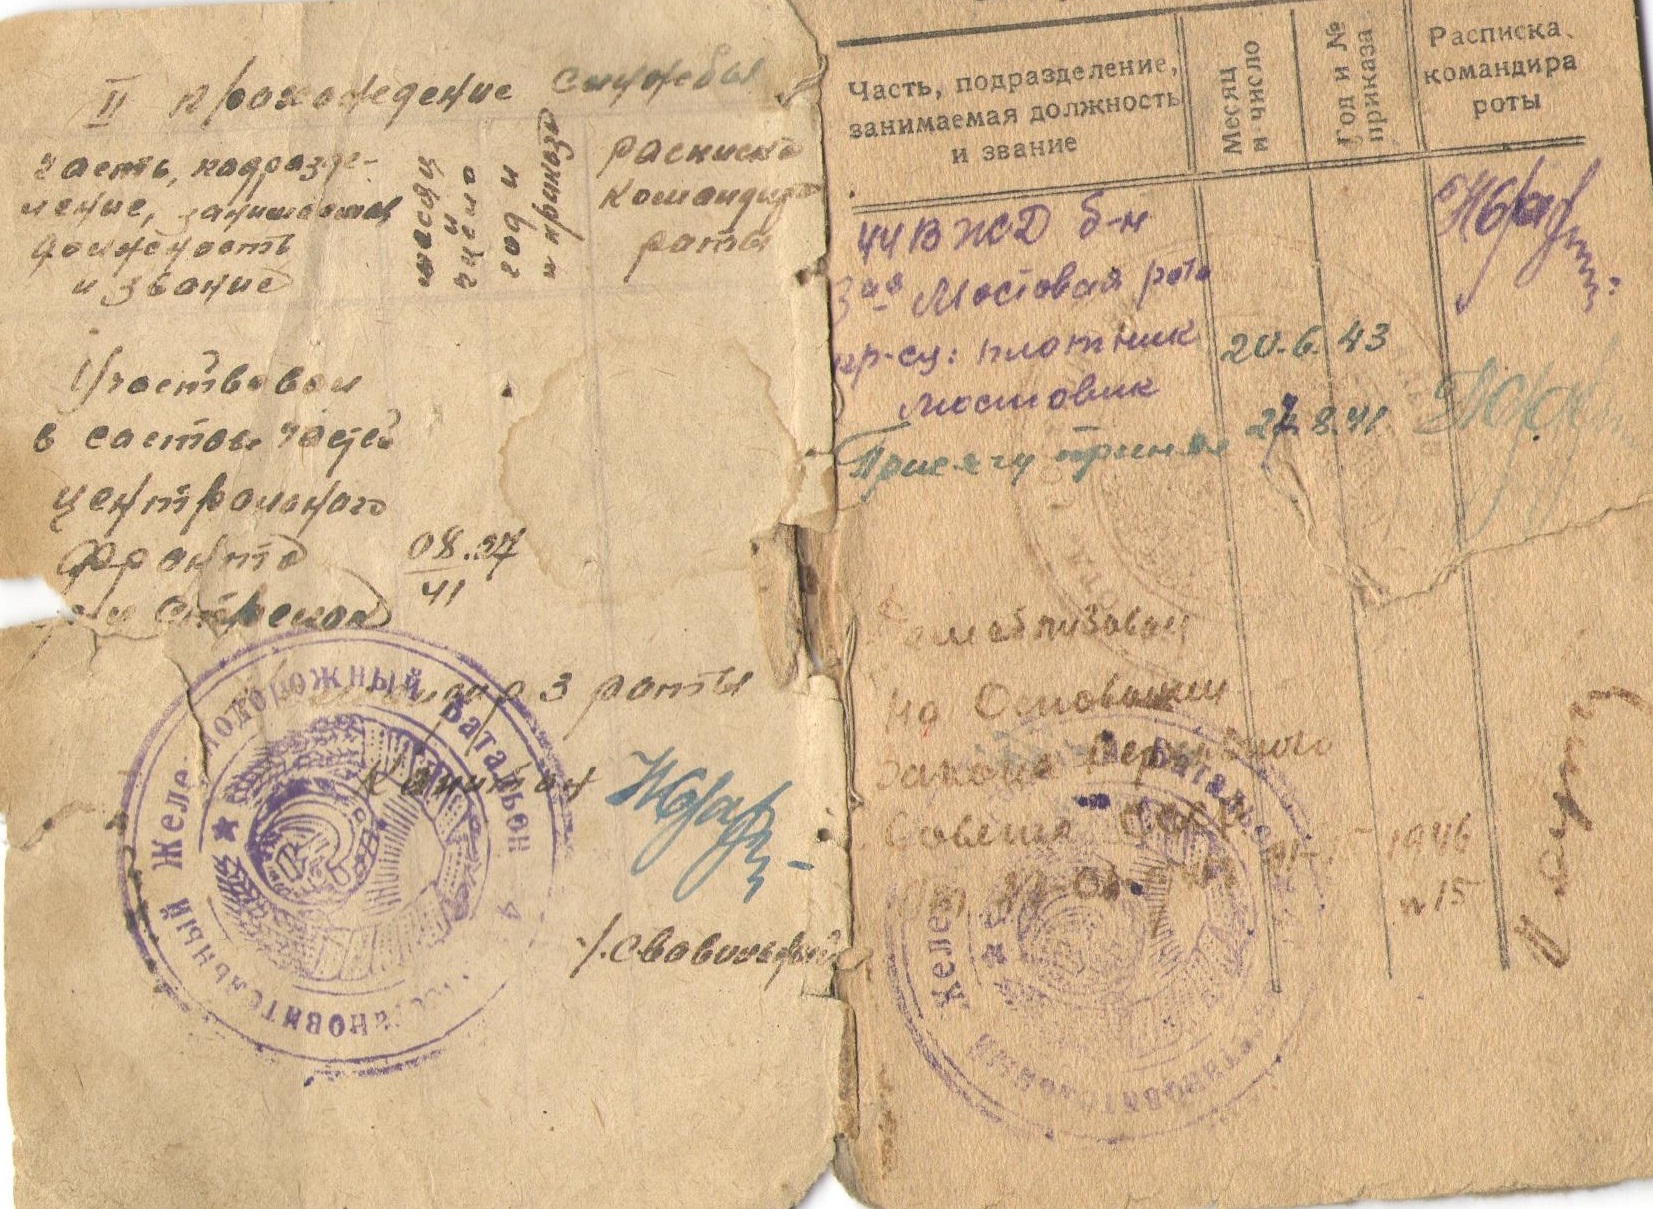 II прохождение службы
часть, подразде-
ление, занимаемая
должность
и звание
месяц
и
число
год и
№ приказа
расписка
командира
роты
Участвовал
в составе частей
центрального
фронта
08.27
41
командир 3 роты
Капитан
/.Свавильный
Железнодорожный Батальон
Восстановительный
4
Часть, подразделение,
занимаемая должность
и звание
Месяц
и число
Год и №
приказа
Расписка
командира
роты
44 В ЖД б-н
3ая Мостовая рота
кр-ец: плотник
мостовик
20.6.43
Присягу принял 27.8.41
Демобилизован
на Основании
Закона Верховного
Совета СССР
От
1946
№15
Желе
Батальон